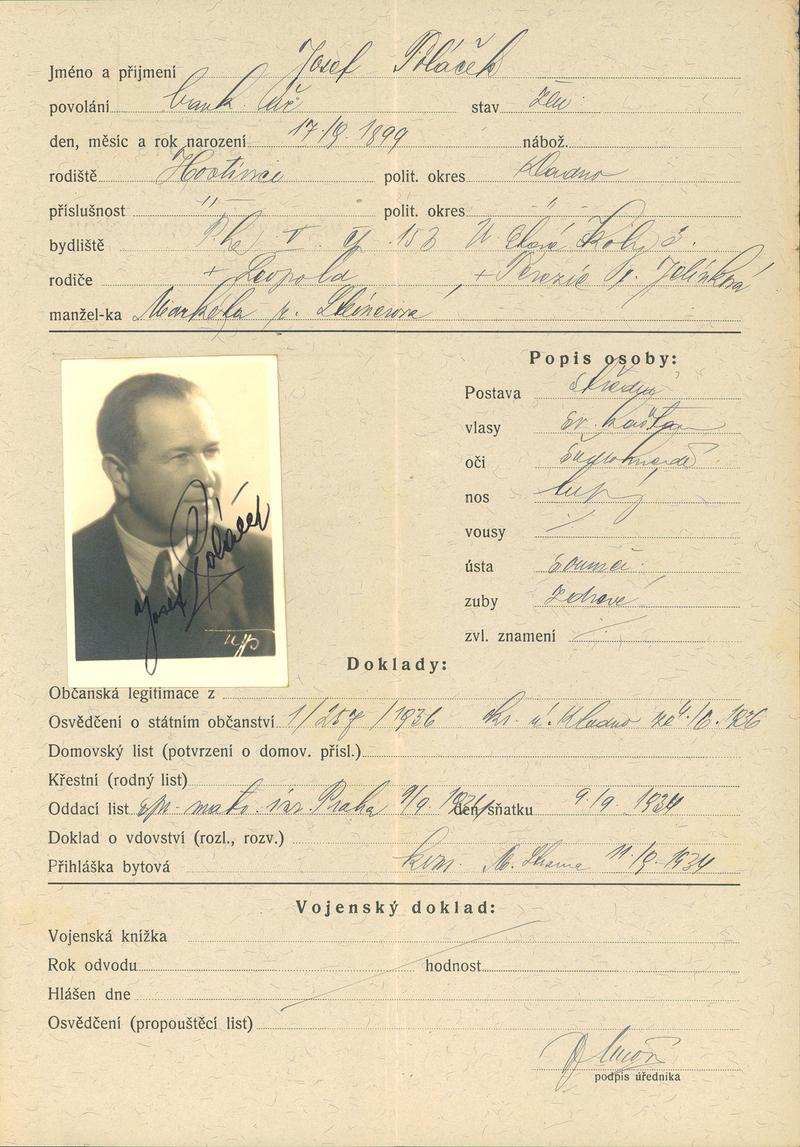 Jméno a přijmení Josef Poláček
povolání bank. úř. stav žen.
den, měsíc a rok narození 17./9. 1899 nábož.
rodiště Hostivice polit. okres Kladno
příslušnost " polit. okres "
bydliště Pha V. čp. 153
rodiče + Leopold, + Terezie r. Jelínková
manžel-ka Markéta r.
Popis osoby:
Postava střední
vlasy sv. kaštan
oči
nos tupý
vousy /
ústa souměr.
zuby zdravé
zvl. znamení /
Josef Poláček
Doklady:
Občanská legitimace z
Osvědčení o státním občanství 1/257/1936 okr. ú. Kladno
Domovský list (potvrzení o domov. přísl.)
Křestní (rodný list)
Oddací list matr. isr. Praha 9/9. 1934 den sňatku 9./9. 1934
Doklad o vdovství (rozl., rozv.)
Přihláška bytová kom. 11./9. 1934
Vojenský doklad:
Vojenská knížka
Rok odvodu hodnost
Hlášen dne
Osvědčení (propouštěcí list)
podpis úředníka